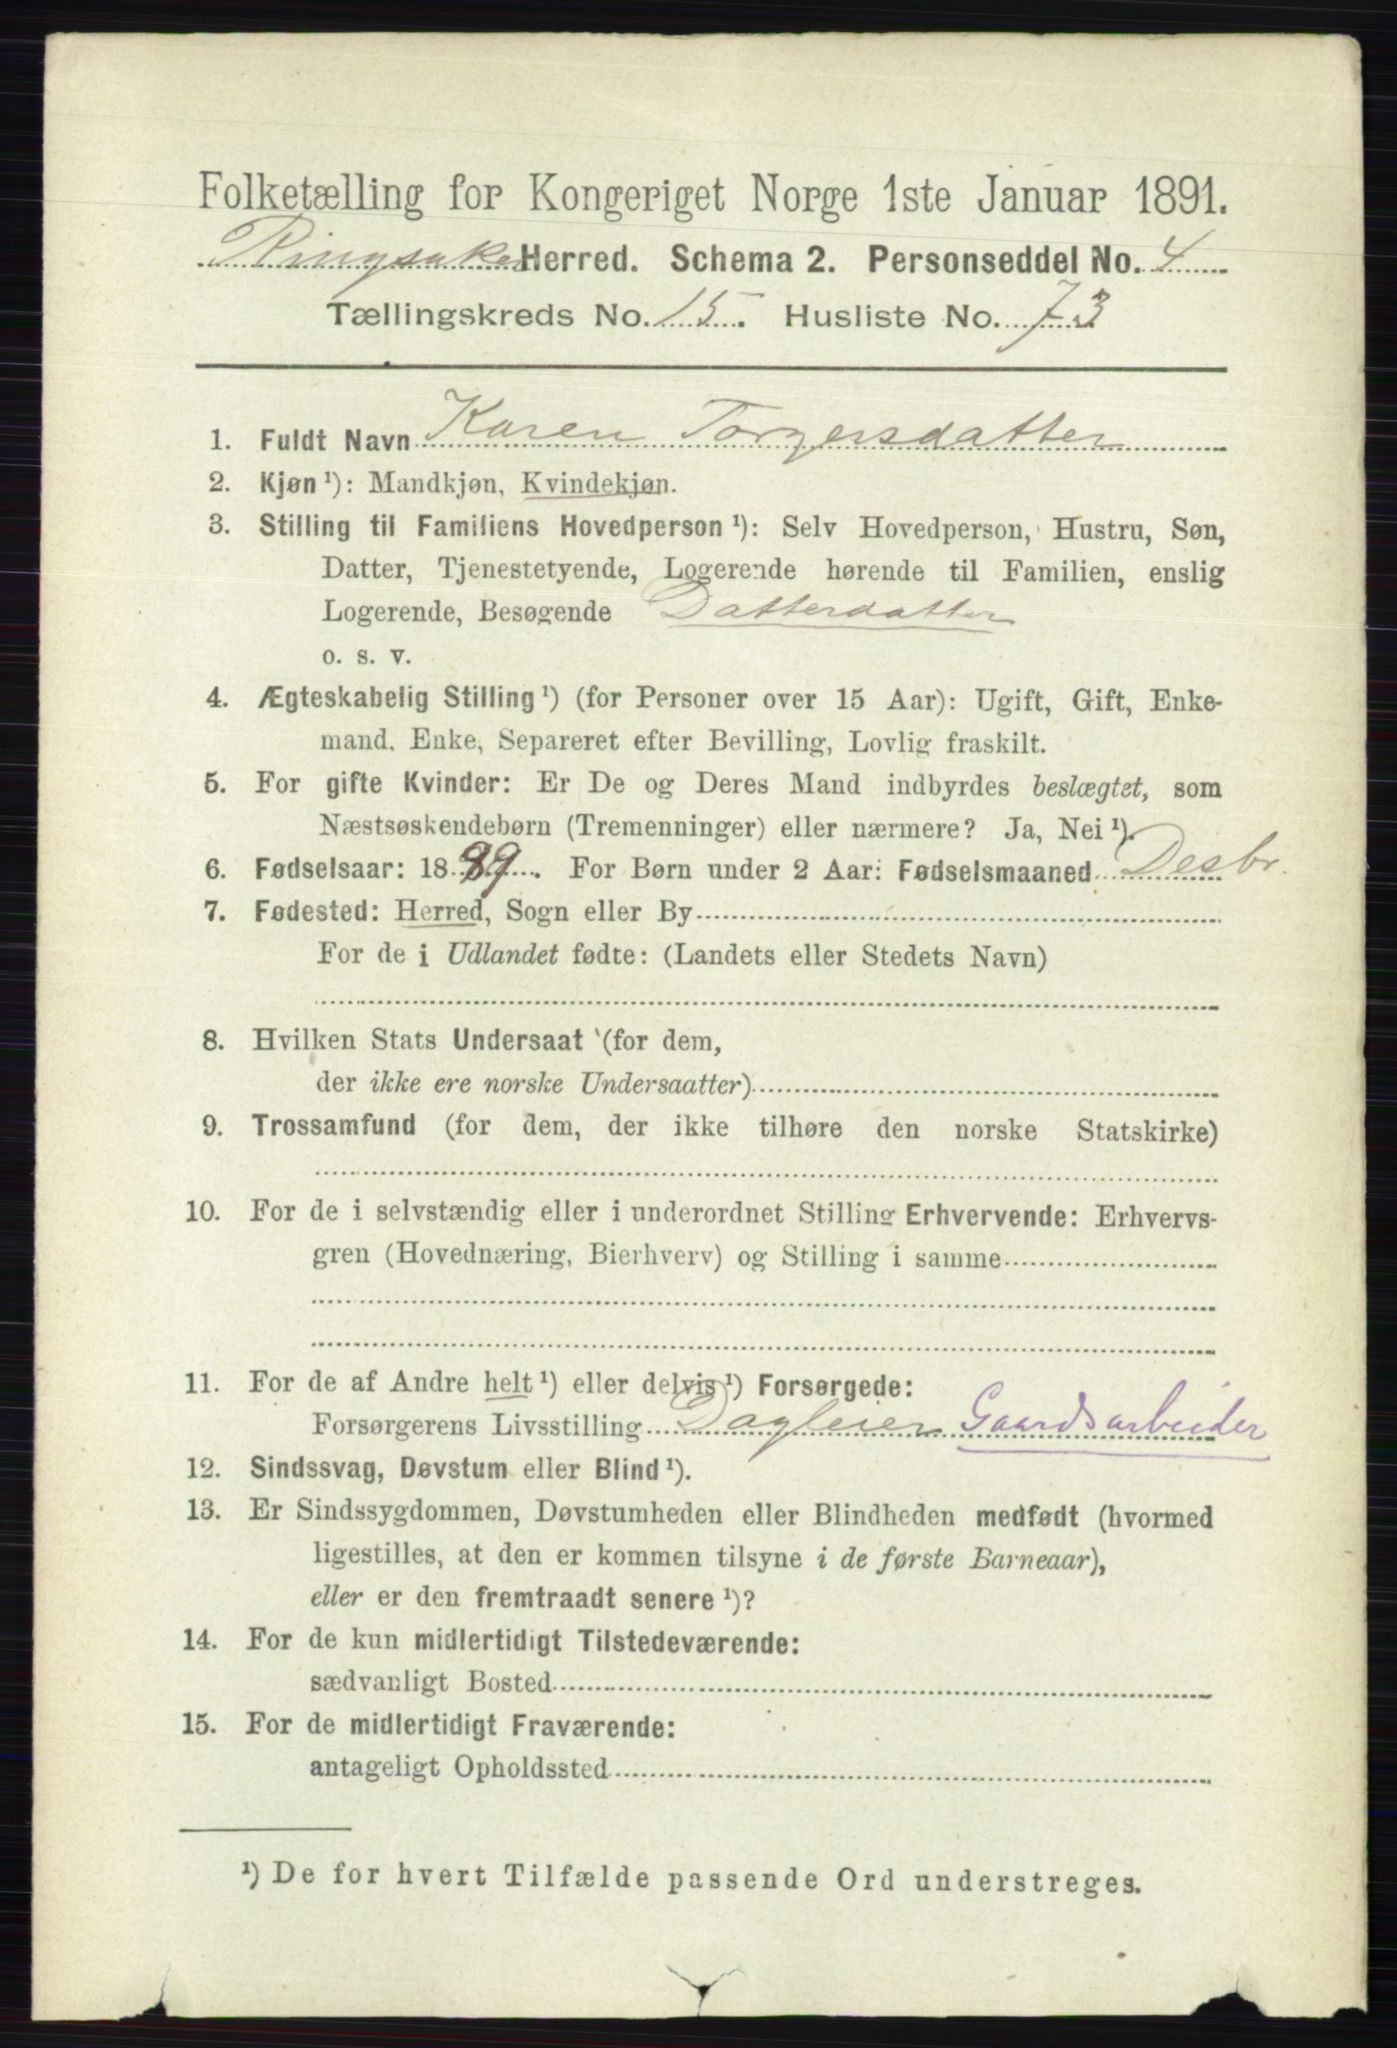 Folketælling for Kongeriget Norge 1ste Januar 1891.
Ringsaker Herred. Schema 2. Personseddel No. 4
Tællingskreds No. 15. Husliste No. 73
1. Fuldt Navn Karen Torgersdatter
2. Kjøn ¹): Mandkjøn, Kvindekjøn.
3. Stilling til Familiens Hovedperson ¹): Selv Hovedperson, Hustru, Søn,
Datter, Tjenestetyende, Logerende hørende til Familien, enslig
Logerende, Besøgende Datterdatter
o. s. v.
4. Ægteskabelig Stilling ¹) (for Personer over 15 Aar): Ugift, Gift, Enke-
mand, Enke, Separeret efter Bevilling, Lovlig fraskilt.
5. For gifte Kvinder: Er De og Deres Mand indbyrdes beslægtet, som
Næstsøskendebørn (Tremenninger) eller nærmere? Ja, Nei ¹).
6. Fødselsaar: 1889. For Børn under 2 Aar: Fødselsmaaned Desbr.
7. Fødested: Herred, Sogn eller By
For de i Udlandet fødte: (Landets eller Stedets Navn)
8. Hvilken Stats Undersaat (for dem,
der ikke ere norske Undersaatter)
9. Trossamfund (for dem, der ikke tilhøre den norske Statskirke)
10. For de i selvstændig eller i underordnet Stilling Erhvervende: Erhvervs-
gren (Hovednæring, Bierhverv) og Stilling i samme
11. For de af Andre helt ¹) eller delvis ¹) Forsørgede:
Forsørgerens Livsstilling Dagleier Gaardsarbeider
12. Sindssvag, Døvstum eller Blind ¹).
13. Er Sindssygdommen, Døvstumheden eller Blindheden medfødt (hvormed
ligestilles, at den er kommen tilsyne i de første Barneaar),
eller er den fremtraadt senere ¹)?
14. For de kun midlertidigt Tilstedeværende:
sædvanligt Bosted
15. For de midlertidigt Fraværende:
antageligt Opholdssted
¹) De for hvert Tilfælde passende Ord understreges.